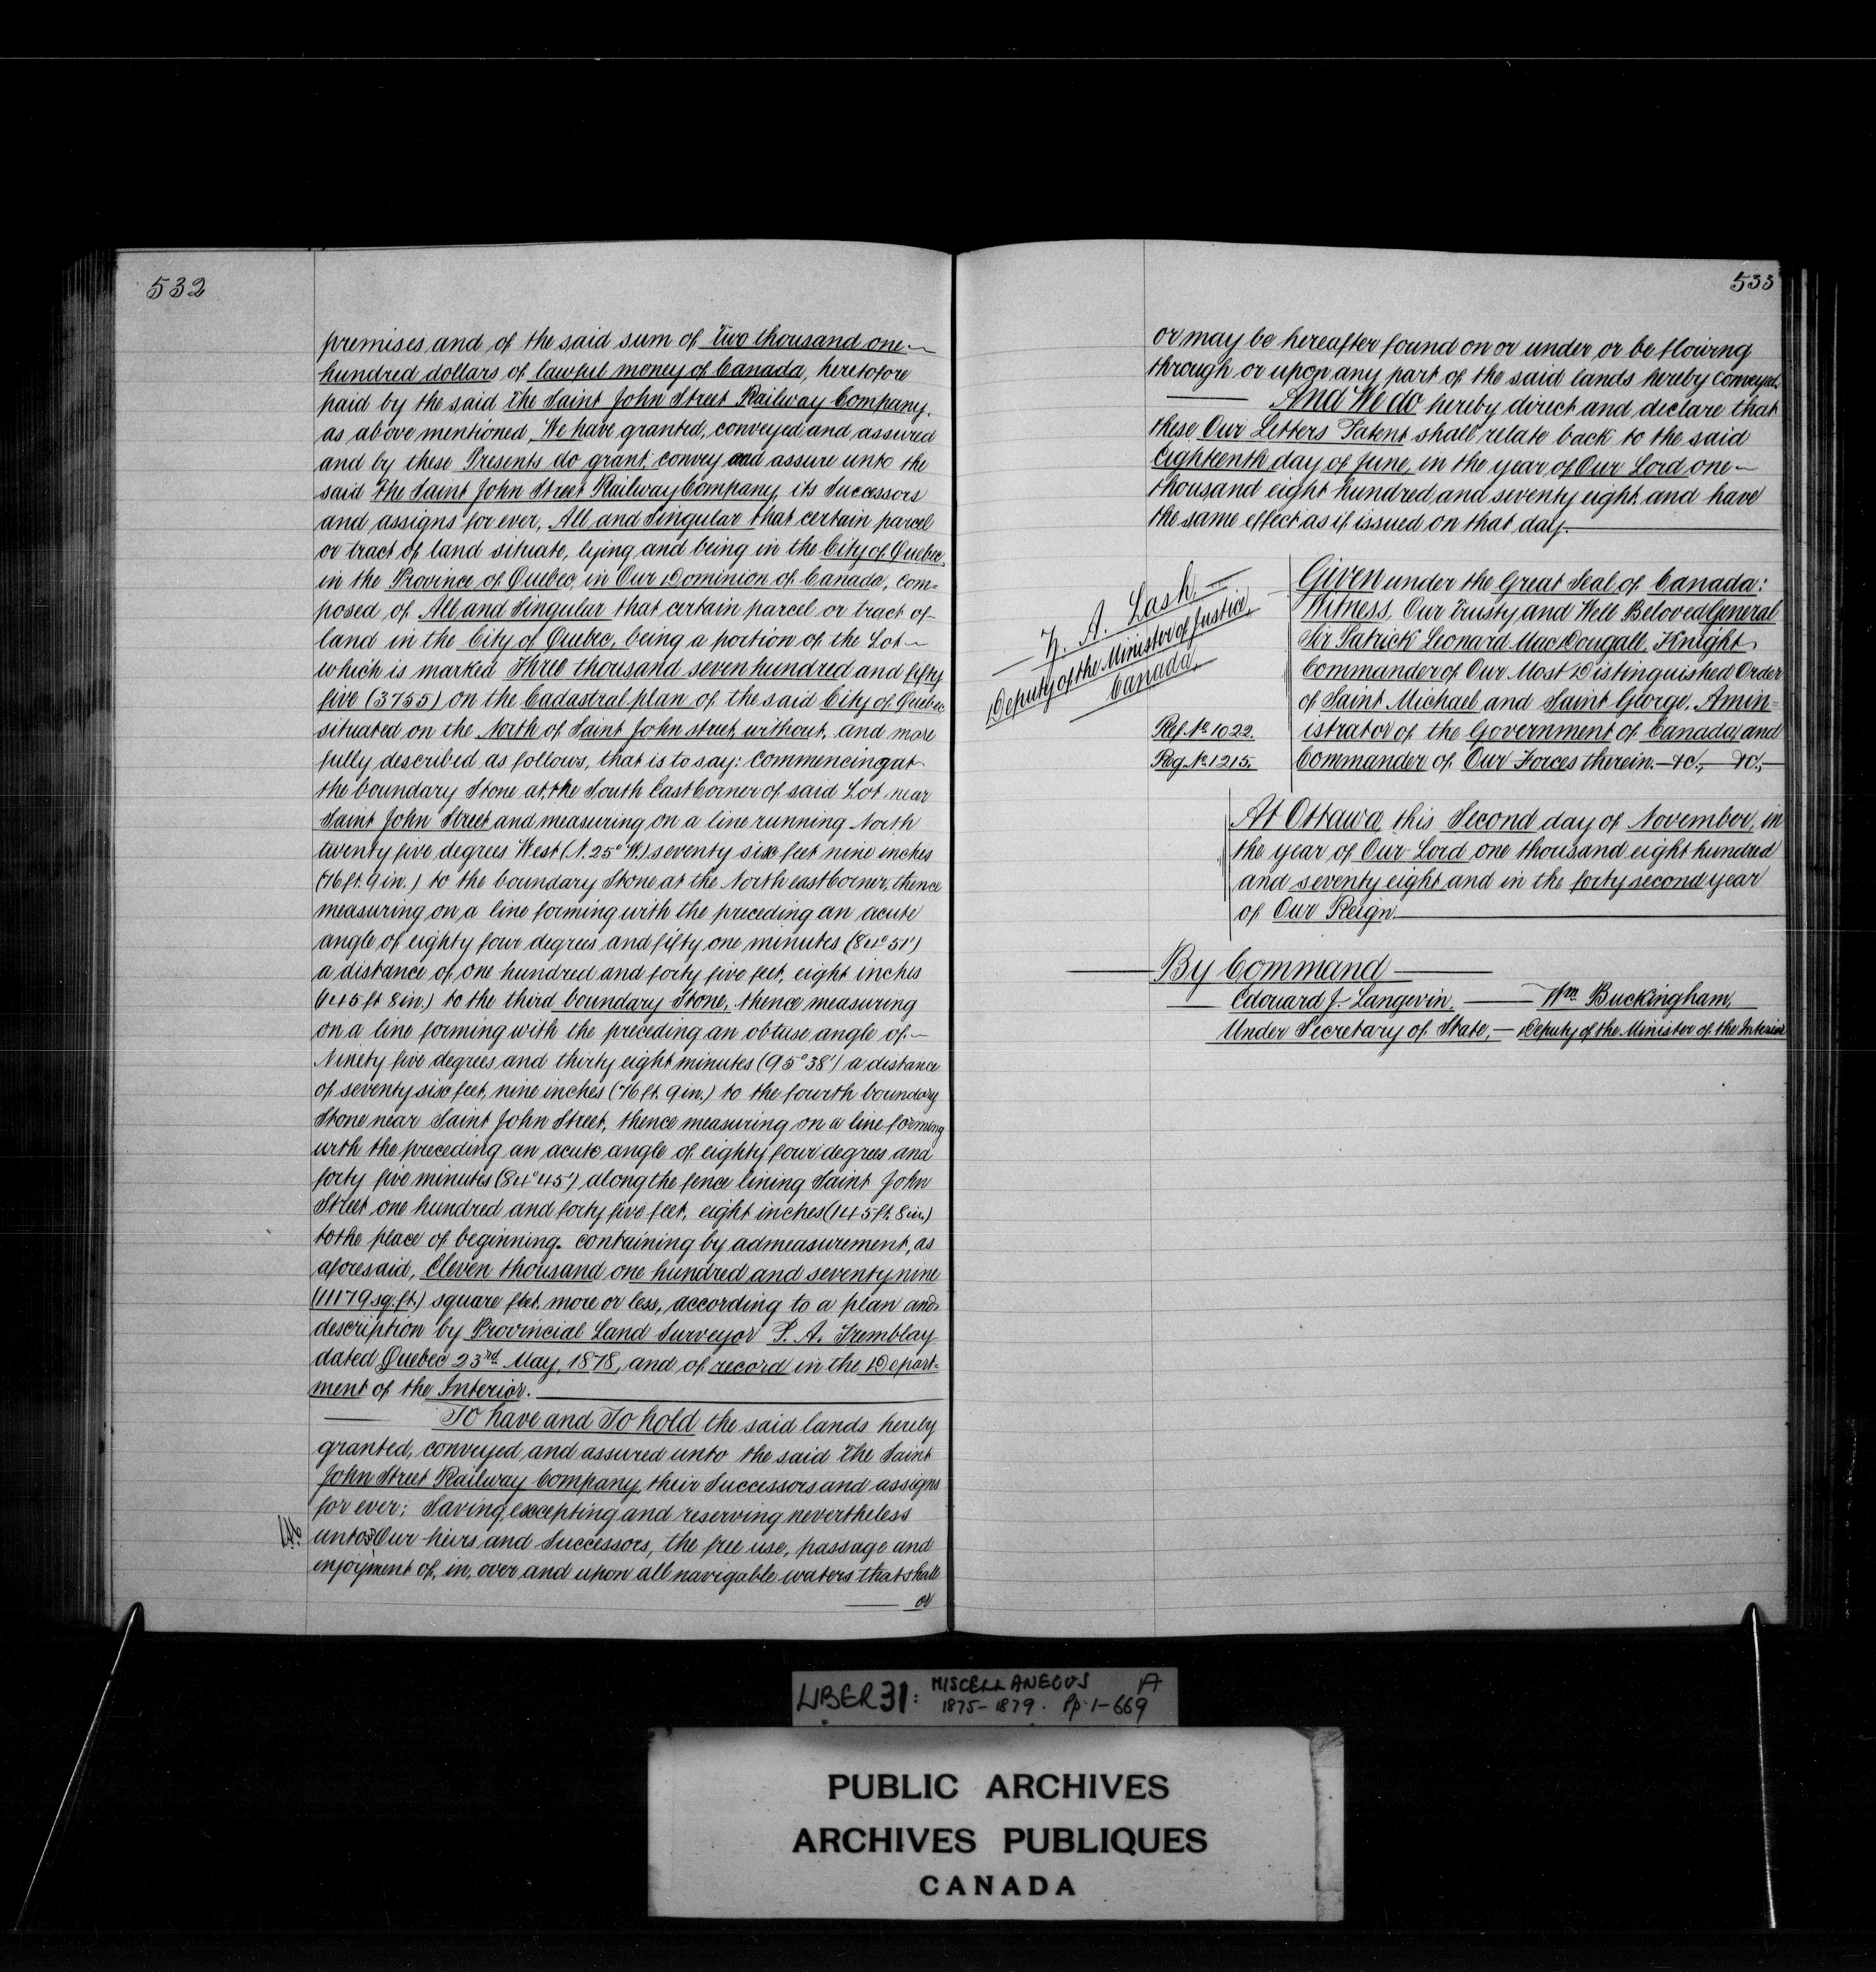 532
premises and of the said sum of Two thousand one
hundred dollars of lawful money of Canada, heretofore
paid by the said The Saint John Street Railway Company,
as above mentioned, We have granted, conveyed and assured
and by these Presents do grant, convey and assure unto the
said The Saint John Street Railway Company, its Successors
and assigns for ever, All and Singular that certain parcel
or tract of land situate, lying and being in the City of Quebec,
in the Province of Quebec, in Our Dominion of Canada, com=
posed of All and Singular that certain parcel or tract of
land in the City of Quebec, being a portion of the Lot
which is marked Three thousand seven hundred and fifty
five (3755) on the Cadastral plan of the said City of Quebec
situated on the North of Saint John street without, and more
fully described as follows, that is to say: Commencing at
the boundary Stone at the South East Corner of said Lot near
Saint John Street and measuring on a line running North
twenty five degrees West (N. 25° W.) seventy six feet nine inches
(76 ft. 9 in.) to the boundary Stone at the North east Corner, thence
measuring on a line forming with the preceding an acute
angle of eighty four degrees and fifty one minutes (84° 51')
a distance of one hundred and forty five feet, eight inches
(145 ft 8 in.) to the third boundary Stone, thence measuring
on a line forming with the preceding an obtuse angle of
Ninety five degrees and thirty eight minutes (95° 38') a distance
of seventy six feet, nine inches (76 ft. 9 in.) to the fourth boundary
Stone near Saint John Street, thence measuring on a line forming
with the preceding an acute angle of eighty four degrees and
forty five minutes (84° 45') along the fence lining Saint John
Street one hundred and forty five feet, eight inches (145 ft. 8 in.)
to the place of beginning. containing by admeasurement, as
aforesaid, Eleven thousand one hundred and seventy nine
(11179 sq. ft.) square feet, more or less, according to a plan and
description by Provincial Land Surveyor P. A. Tremblay
dated Quebec 23rd May, 1878, and of record in the Depart=
ment of the Interior.
To have and To hold the said lands hereby
granted, conveyed and assured unto the said The Saint
John Street Railway Company, their Successors and assigns
for ever; Saving, excepting and reserving nevertheless
unto Our heirs and Successors, the free use, passage and
enjoyment of, in, over and upon all navigable waters that shall
or
533
or may be hereafter found on or under or be flowing
through or upon any part of the said lands hereby conveyed.
And We do hereby direct and declare that
these Our Letters Patent shall relate back to the said
Eighteenth day of June, in the year of Our Lord one
thousand eight hundred and seventy eight, and have
the same effect as if issued on that day.
Z. A. Lash
Deputy of the Minister of Justice,
Canada.
Ref. No. 1022.
Reg. No. 1215.
Given under the Great Seal of Canada:
Witness, Our Trusty and Well Beloved General
Sir Patrick Leonard MacDougall, Knight
Commander of Our Most Distinguished Order
of Saint Michael and Saint George, Amin=
istrator of the Government of Canada, and
Commander of Our Forces therein. &c., &c.,
At Ottawa, this Second day of November, in
the year of Our Lord one thousand eight hundred
and seventy eight and in the forty second year
of Our Reign
By Command
Edouard J. Langevin, Wm. Buckingham,
Under Secretary of State, Deputy of the Minister of the Interior
LIBER 31: MISCELLANEOUS A
1875-1879. Pp. 1-669
PUBLIC ARCHIVES
ARCHIVES PUBLIQUES
CANADA